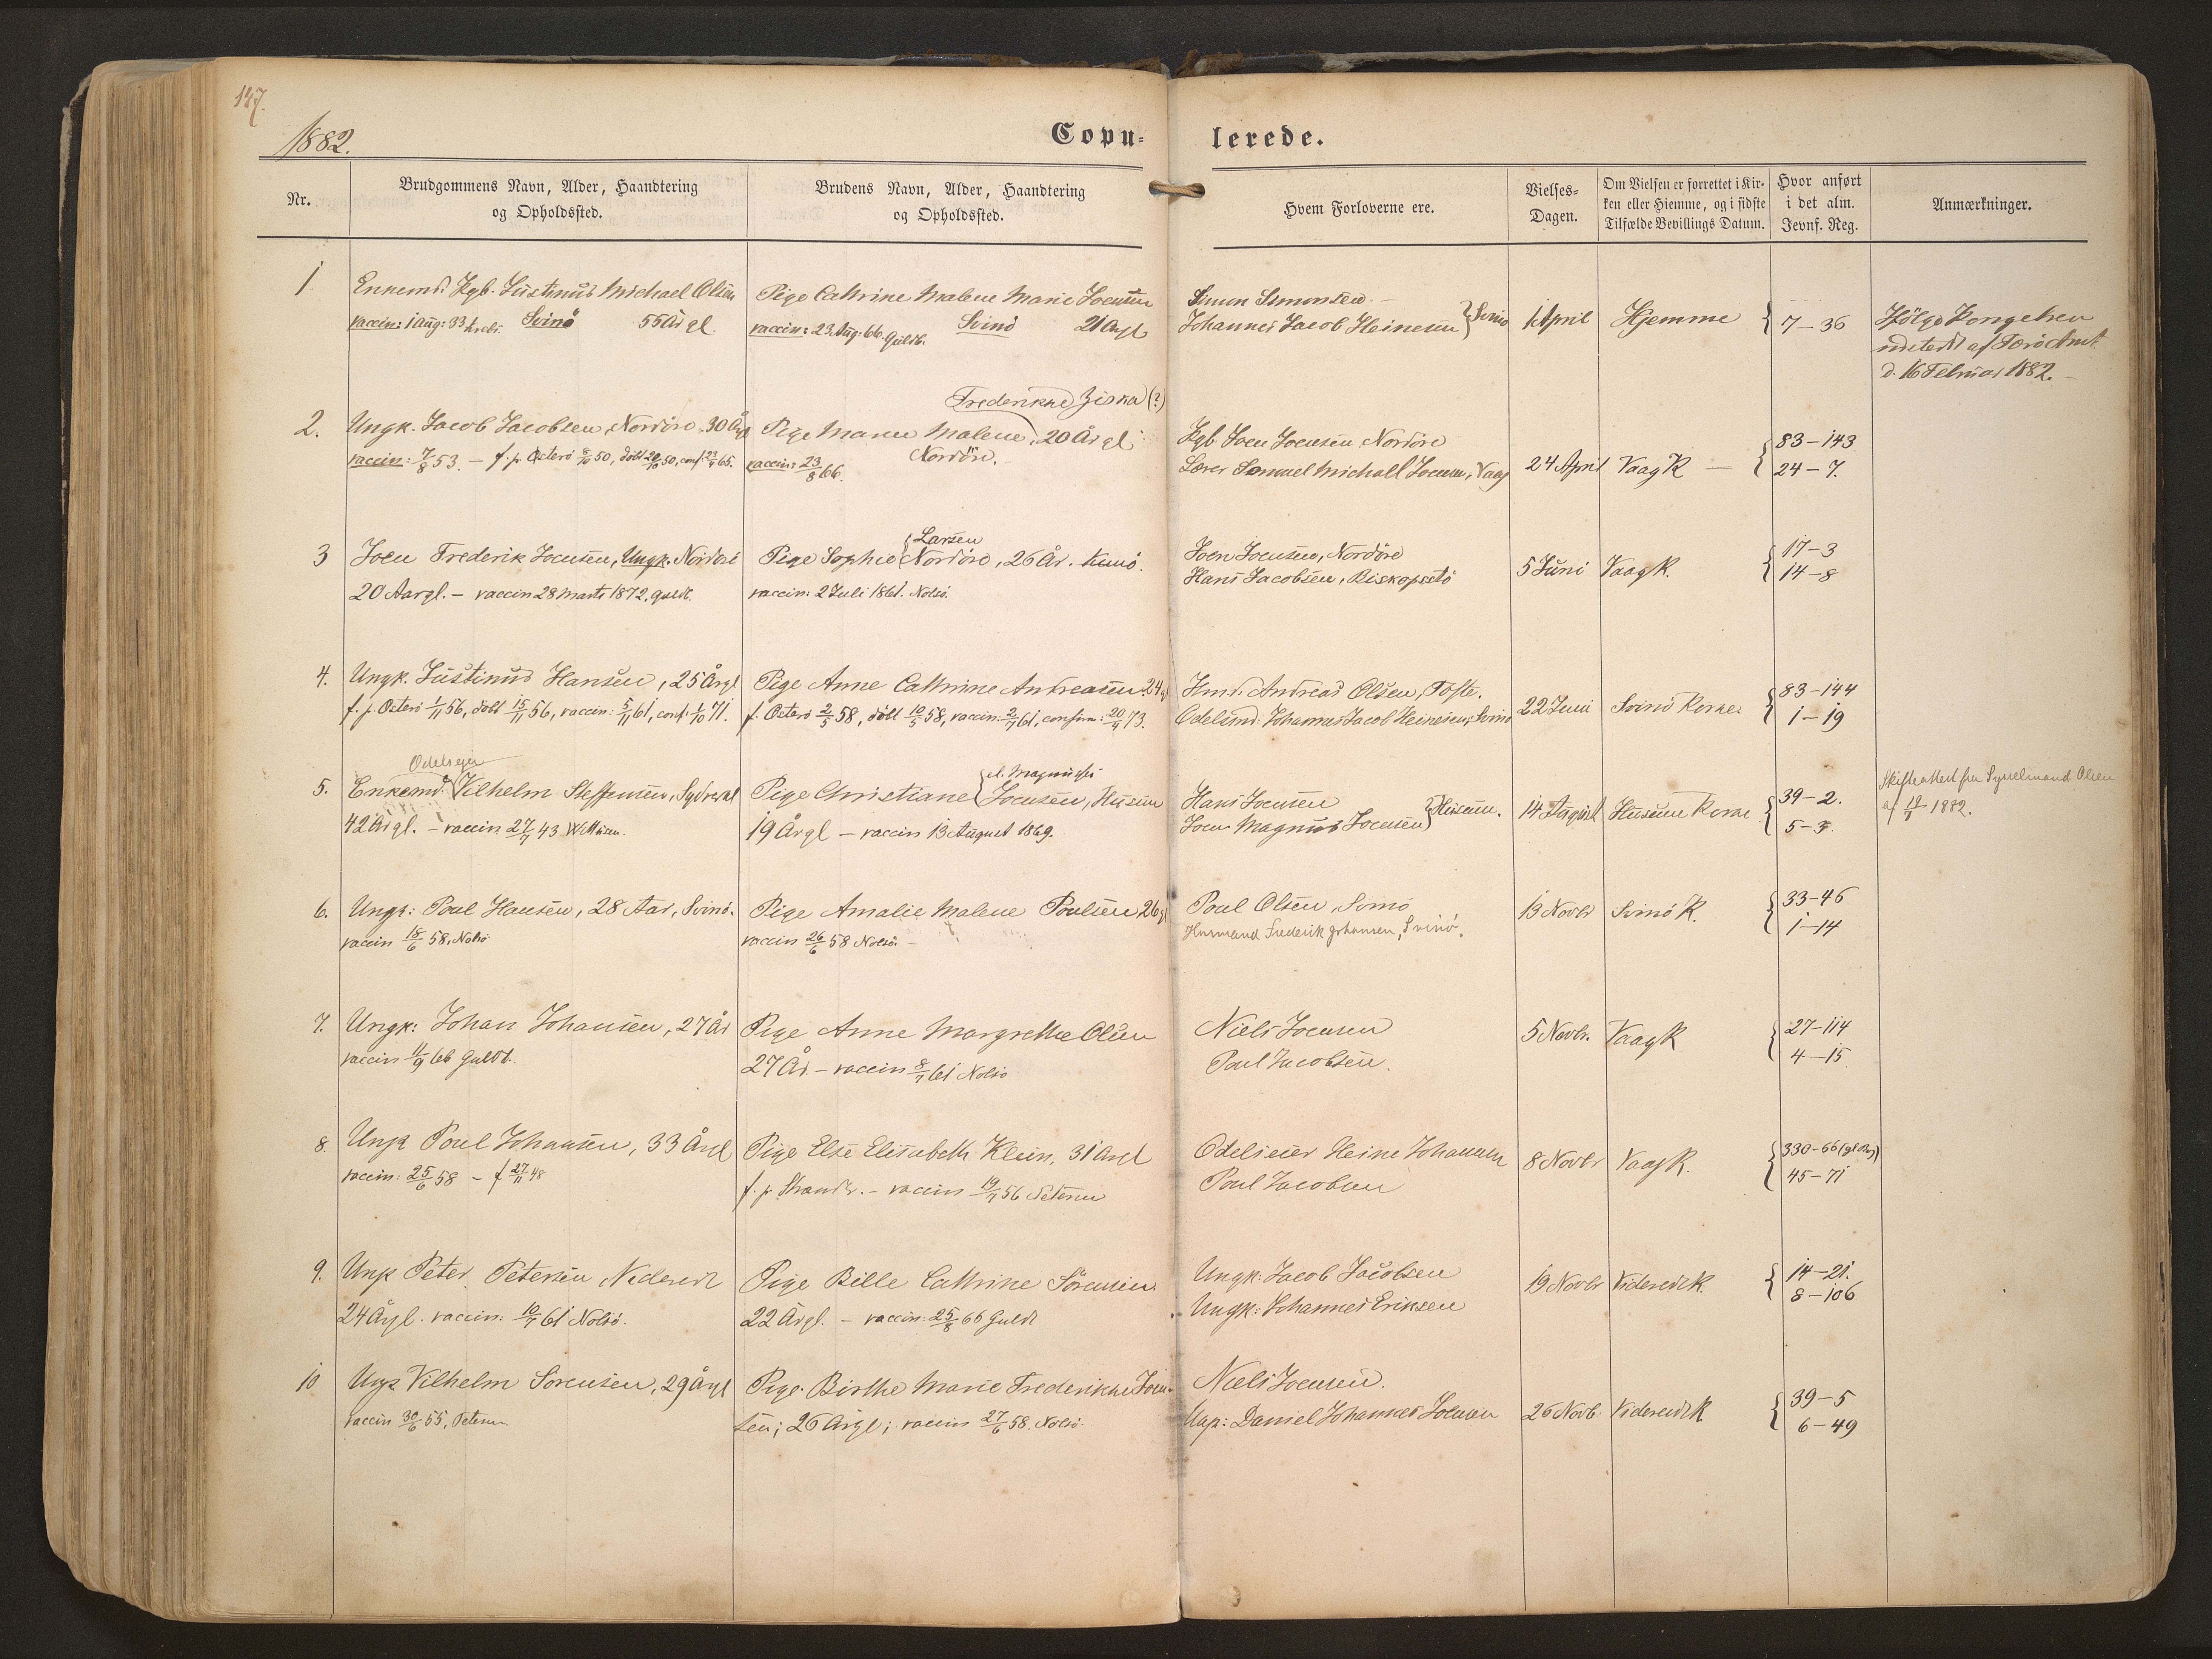 147.
1882.
Copu-
lerede.
Nr.
Brudgommens Navn, Alder, Haandtering
og Opholdssted.
Brudens Navn, Alder, Haandtering
og Opholdssted.
Hvem Forloverne ere.
Vielses-
Dagen.
Om Vielsen er forrettet i Kir-
ken eller Hiemme, og i sidste
Tilfælde Bevillings Datum.
Hvor anført
i det alm.
Jevnf. Reg.
Anmærkninger.
1
Enkemd. Kgb. Justinus Michael Olsen
vaccin: 1 Aug: 33 Svinö 55 År gl.
Pige Cathrine Malene Marie Joensen
vaccin: 23 Aug: 66. Guldb. Svinö 21 Årgl
Simon Simonsen
Johannes Jacob Heinesen } Svinö
1 April
Hjemme
7-36
Ifölge Kongebrev
udstedt af Færö Amt
d. 16 Februar 1882.
2.
Ungk. Jacob Jacobsen, Nordöre, 30 Årgl
vaccin: 7/8 53. - f. p. Österö 8/10 50, döbt 20/10 50, conf 23/4 65.
Frederikke Ziska (?)
Pige Maren Malene, 20 År gl
Nordöre.
vaccin: 23/8 66.
Kgb. Joen Joensen Nordöre
Lærer Samuel Michall Joensen, Vaag
24 April
Vaag K
83-143
24-7.
3
Joen Frederik Joensen, Ungk. Nordöre
20 Aargl. - vaccin 28 Marts 1872, Guldb.
Larsen
Pige Sophie Nordöre, 26 År. Kunö.
vaccin: 2 Juli 1861. Nolsö.
Joen Joensen, Nordöre
Hans Jacobsen, Biskopsstö
5 Juni
Vaag K.
17-3
14-8
4.
Ungk. Justinus Hansen, 25 Årgl
f. p. Österö 1/11 56, döbt 15/11 56, vaccin: 5/11 61, conf. 1/10 71.
Pige Anne Cathrine Andreasen 24 gl
f. Österö 2/5 58, döbt 10/5 58, vaccin: 2/7 61, confirm: 20/4 73.
Hmd. Andreas Olsen, Tofte.
Odelsmd. Johannes Jacob Heinesen, Svinö
22 Juni
Svinö Kirke
83-144
1-19
5.
Odelsejer
Enkemd. Vilhelm Steffensen, Sydredal
42 Årgl. - vaccin 27/7 43
el. Magnussen
Pige Christiane Joensen, Husum
19 Årgl - vaccin 13 August 1869.
Hans Joensen
Joen Magnus Joensen } Husum.
14 August
Husum Kirke
39-2.
5-3.
Skifteattest fra Sysselmand Olsen
af 1882.
6.
Ungk: Poul Hansen, 28 Aar, Svinö.
vaccin 18/6 58, Nolsö
Pige Amalie Malene Poulsen 26 gl
vaccin 26/6 58 Nolsö.
Poul Olsen, Svinö
Husmand Frederik Johansen, Svinö.
13 Novbr
Svinö K.
33-46
1-14
7.
Ungk: Johan Johansen, 27 År
vaccin 11/9 66 Guldb.
Pige Anne Margrethe Olsen
27 År. - vaccin 8/7 61 Nolsö
Niels Joensen
Poul Jacobsen.
5 Novbr.
Vaag K
27-114
4-15
8.
Ungk Poul Johansen, 33 Årgl
vaccin: 25/6 58 - f 27/11 48
Pige Else Elisabeth Klein, 31 Årgl
f. p. Strandr. - vaccin 19/7 56 Petersen
Odelseier Heine Johansen
Poul Jacobsen
8 Novbr
Vaag K.
330-66 (gl. Reg)
45-71
9.
Ungk Peter Petersen, Videreid
24 Årgl. vaccin: 10/7 61 Nolsö.
Pige Bille Cathrine Sörensen
22 Årgl. - vaccin: 25/8 66 Guldb
Ungk: Jacob Jacobsen
Ungk: Johannes Eriksen
19 Novbr
Videreid K.
14-21.
8-106
10
Ungk Vilhelm Sörensen, 29 Årgl
vaccin 30/6 55, Petersen
Pige Birthe Marie Frederikke Joen-
sen; 26 Årgl; vaccin 27/6 58. Nolsö.
Niels Joensen.
Ungk: Daniel Johannes Joensen
26 Novb.
Videreid K
39-5
6-49